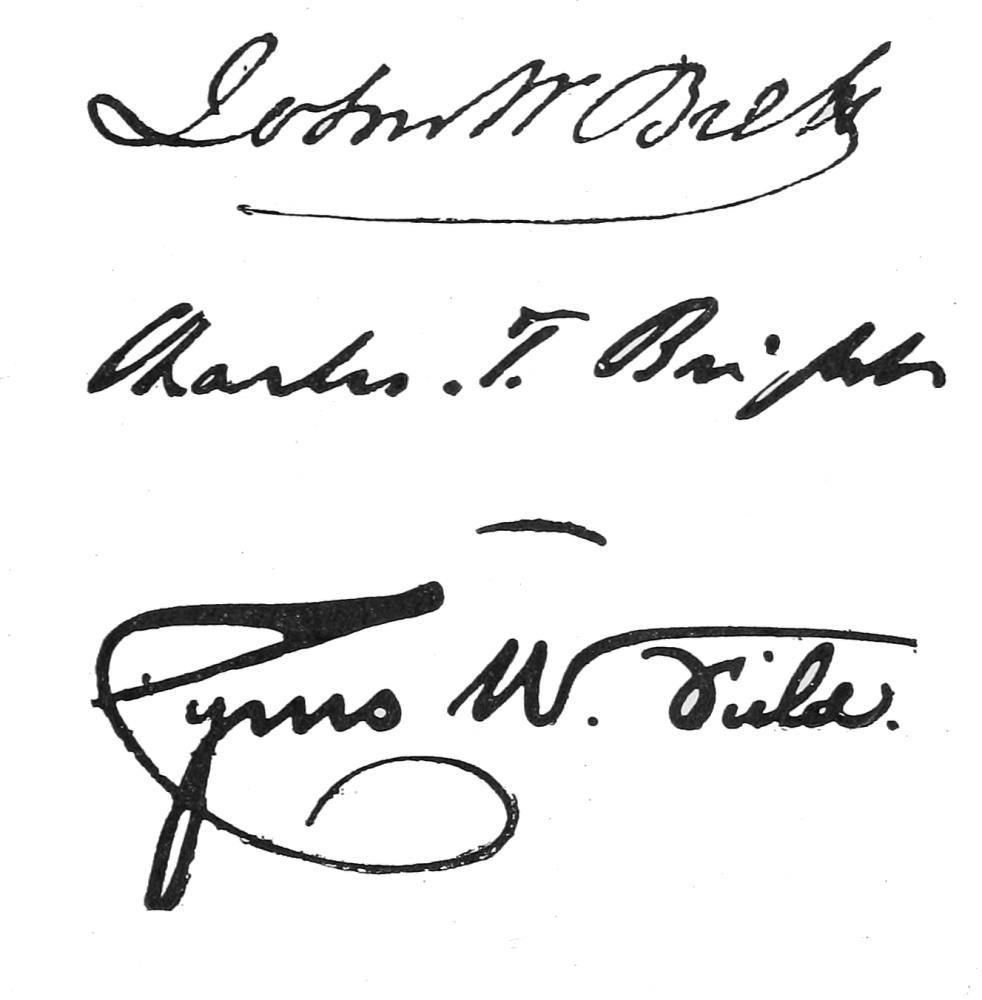 John W Brett
Charles . T. Bright
Cyrus W. Field.